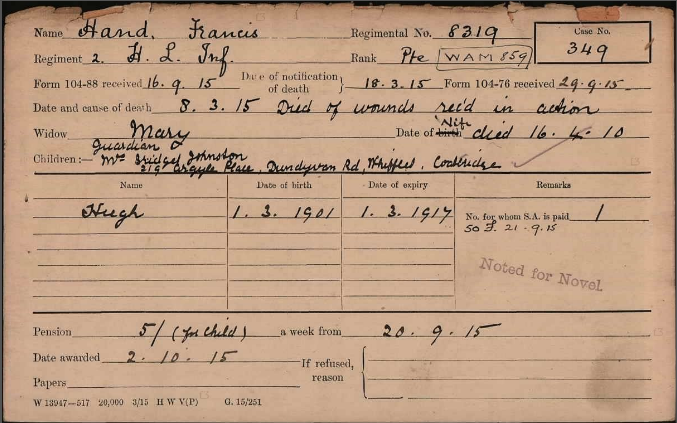 Name Hand, Francis Regimental No. 8319
Case No. 349
Regiment 2. H. L. Inf. Rank Pte WAM 859
Form 104-88 received 16. 9. 15 Date of notification of death } 18.3.15 Form 104-76 received 29.9.15
Date and cause of death 8. 3. 15 Died of wounds rec'd in action
Widow Mary Date of birth Wife died 16. 4. 10
Guardian
Children:— Mrs Bridget Johnston
219 Argyle Place, Dundyvan Rd, Whifflet, Coatbridge
Name Date of birth Date of expiry Remarks
Hugh 1. 3. 1901 1. 3. 1917 No. for whom S.A. is paid 1
50 F. 21-9.15
Noted for Novel.
Pension 5/ (for child) a week from 20. 9. 15
Date awarded 2. 10. 15 If refused, reason
Papers
W 13947—517 20,000 3/15 H W V(P) G. 15/251